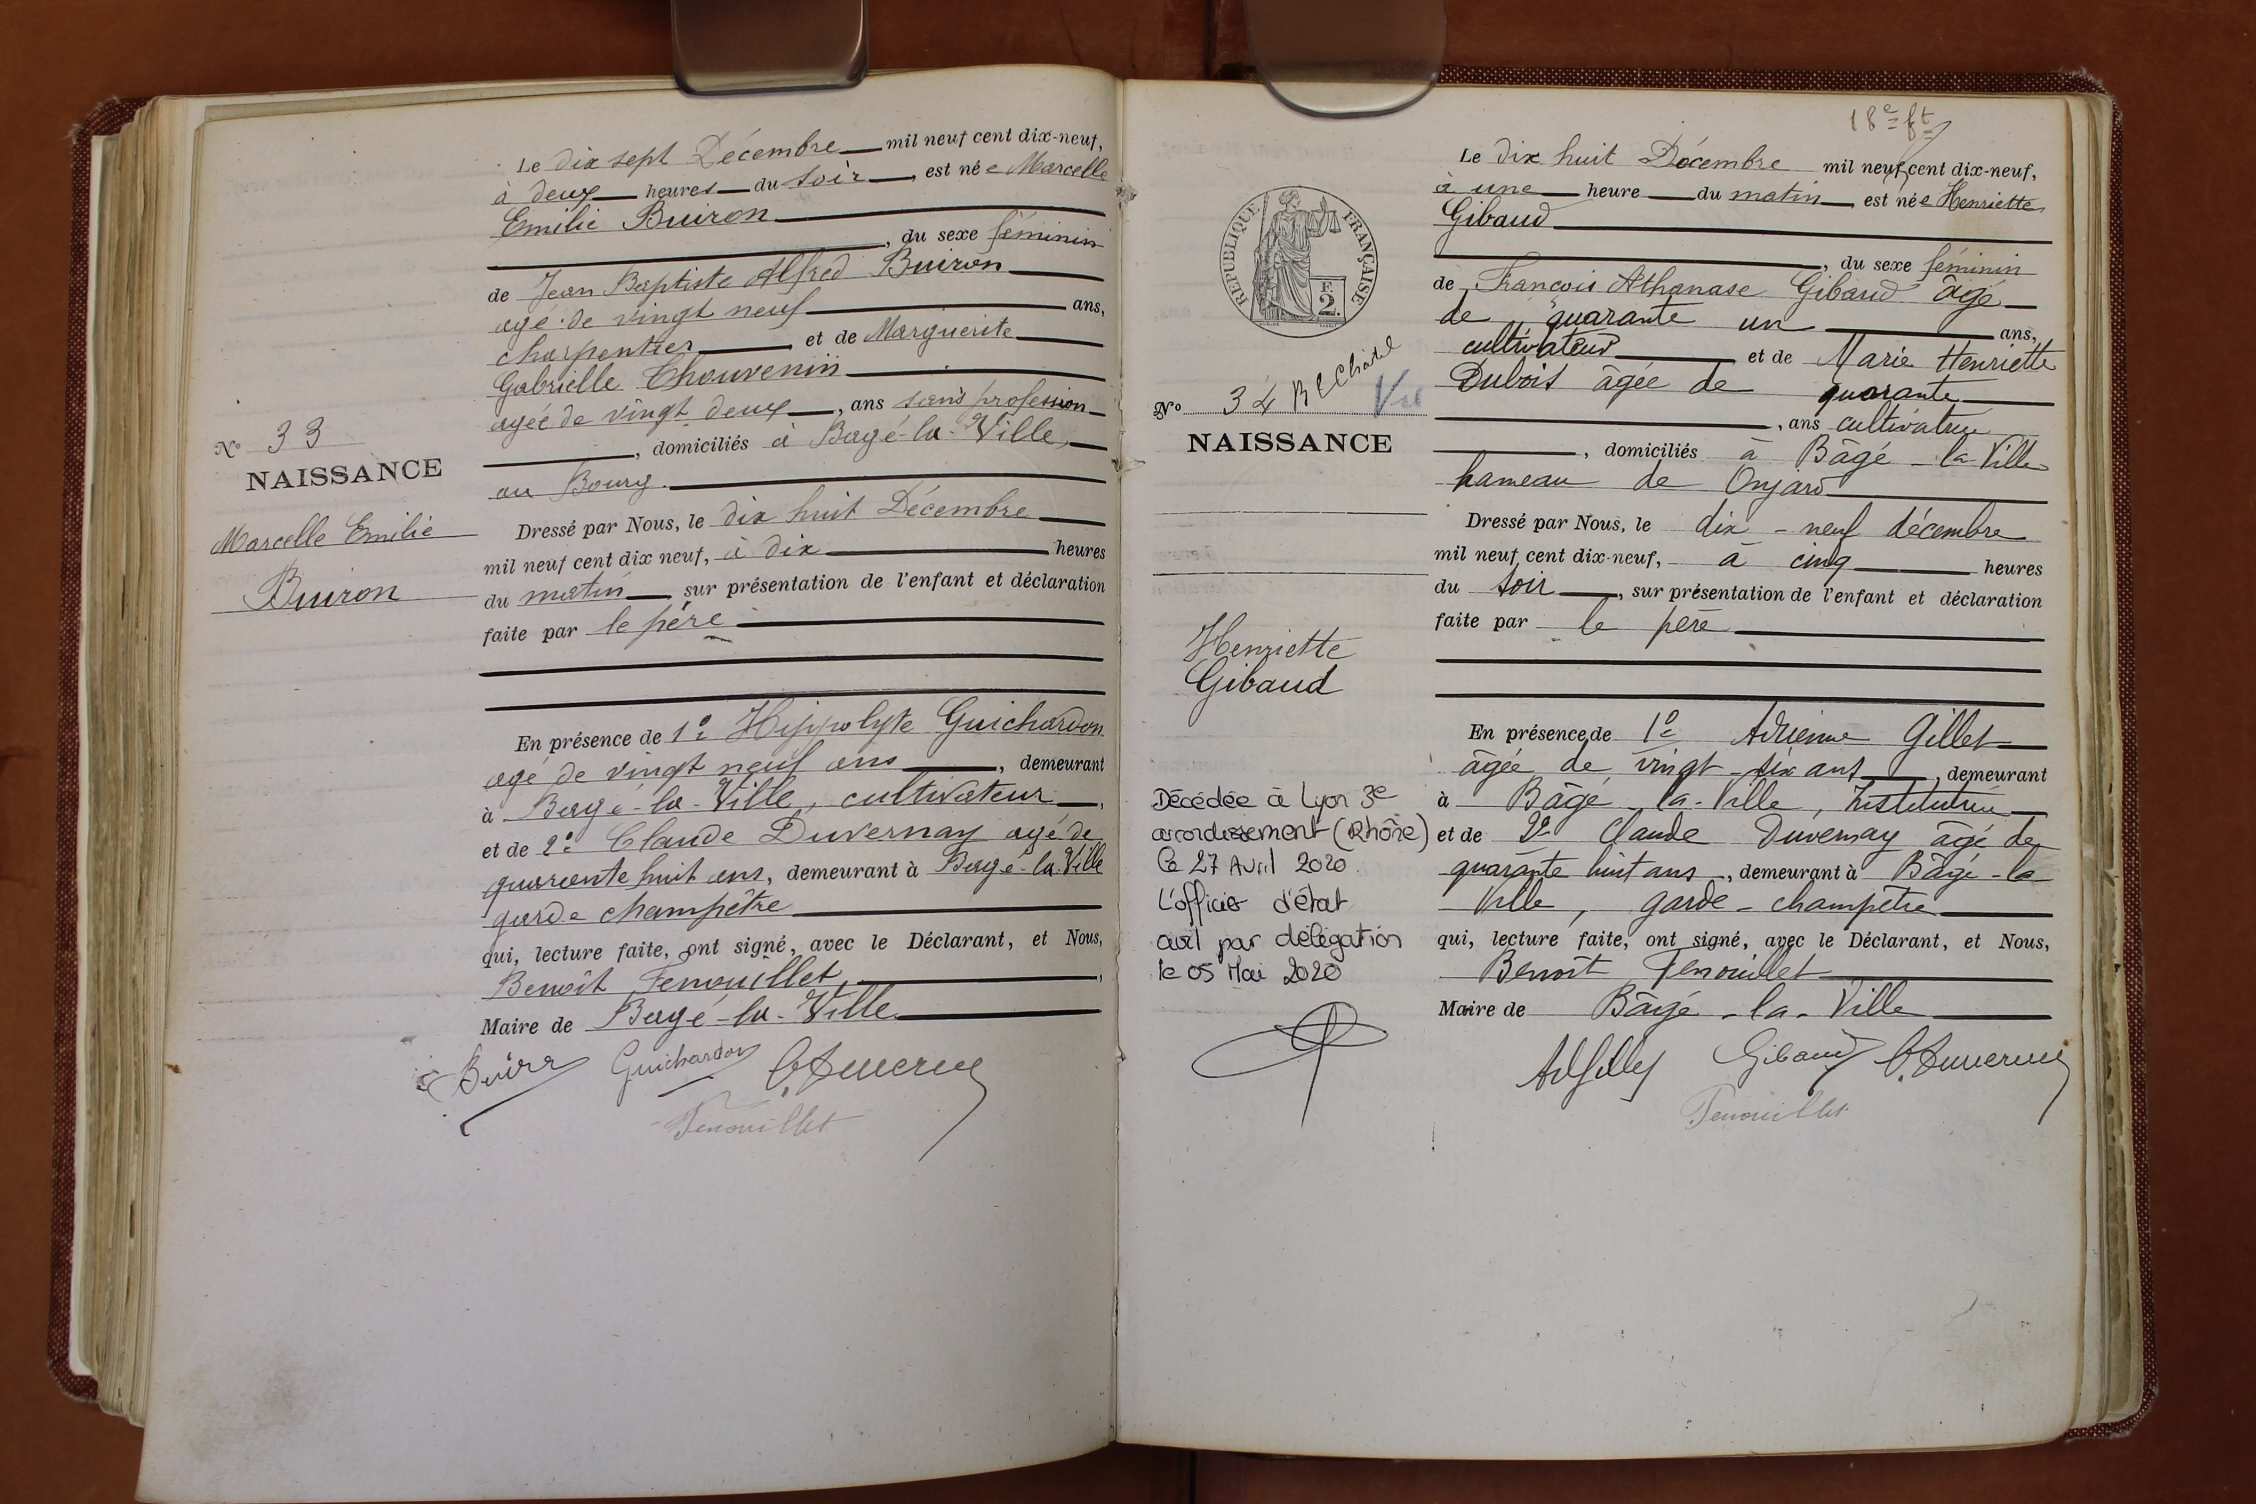 Le dix sept Décembre mil neuf cent dix-neuf,
à deux heures du soir, est née Marcelle
Emilie Buiron
, du sexe féminin
de Jean Baptiste Alfred Buiron
agé de vingt neuf ans,
charpentier et de Marguerite
Gabrielle Thouvenin
agée de vingt deux, ans sans profession
, domiciliés à Bagé-la-Ville,
au Bourg.
Dressé par Nous, le dix huit Décembre
mil neuf cent dix neuf, à dix heures
du matin, sur présentation de l'enfant et déclaration
faite par le père
En présence de 1º Hippolyte Guichardon
agé de vingt neuf ans, demeurant
à Bagé-la-Ville, cultivateur,
et de 2º Claude Duvernay agé de
quarante huit ans, demeurant à Bagé-la-Ville
garde champêtre
qui, lecture faite, ont signé, avec le Déclarant, et Nous,
Benoît Fenouillet,
Maire de Bagé-la-Ville
Guichardon
Fenouillet
Nº 33
NAISSANCE
Marcelle Emilie
Buiron
18e ft
Le dix huit Décembre mil neuf cent dix-neuf,
à une heure du matin, est née Henriette
Gibaud
, du sexe féminin
de François Athanase Gibaud âgé
de quarante un ans,
cultivateur et de Marie Henriette
Dubois âgée de quarante
, ans cultivatrice
, domiciliés à Bâgé-la-Ville
hameau de Onjard
Dressé par Nous, le dix-neuf décembre
mil neuf cent dix-neuf, à cinq heures
du soir, sur présentation de l'enfant et déclaration
faite par le père
En présence de 1º Adrienne Gillet
âgée de vingt-six ans, demeurant
à Bâgé-la-Ville, Institutrice
et de 2º Claude Duvernay âgé de
quarante huit ans, demeurant à Bâgé-la
Ville, garde-champêtre
qui, lecture faite, ont signé, avec le Déclarant, et Nous,
Benoît Fenouillet
Maire de Bâgé-la-Ville
Gibaud
Fenouillet
REPUBLIQUE FRANÇAISE
F.
2.
Nº 34
NAISSANCE
Henriette
Gibaud
Décédée à Lyon 3e
arrondissement (Rhône)
le 27 Avril 2020
L'officier d'état
civil par délégation
le 05 Mai 2020